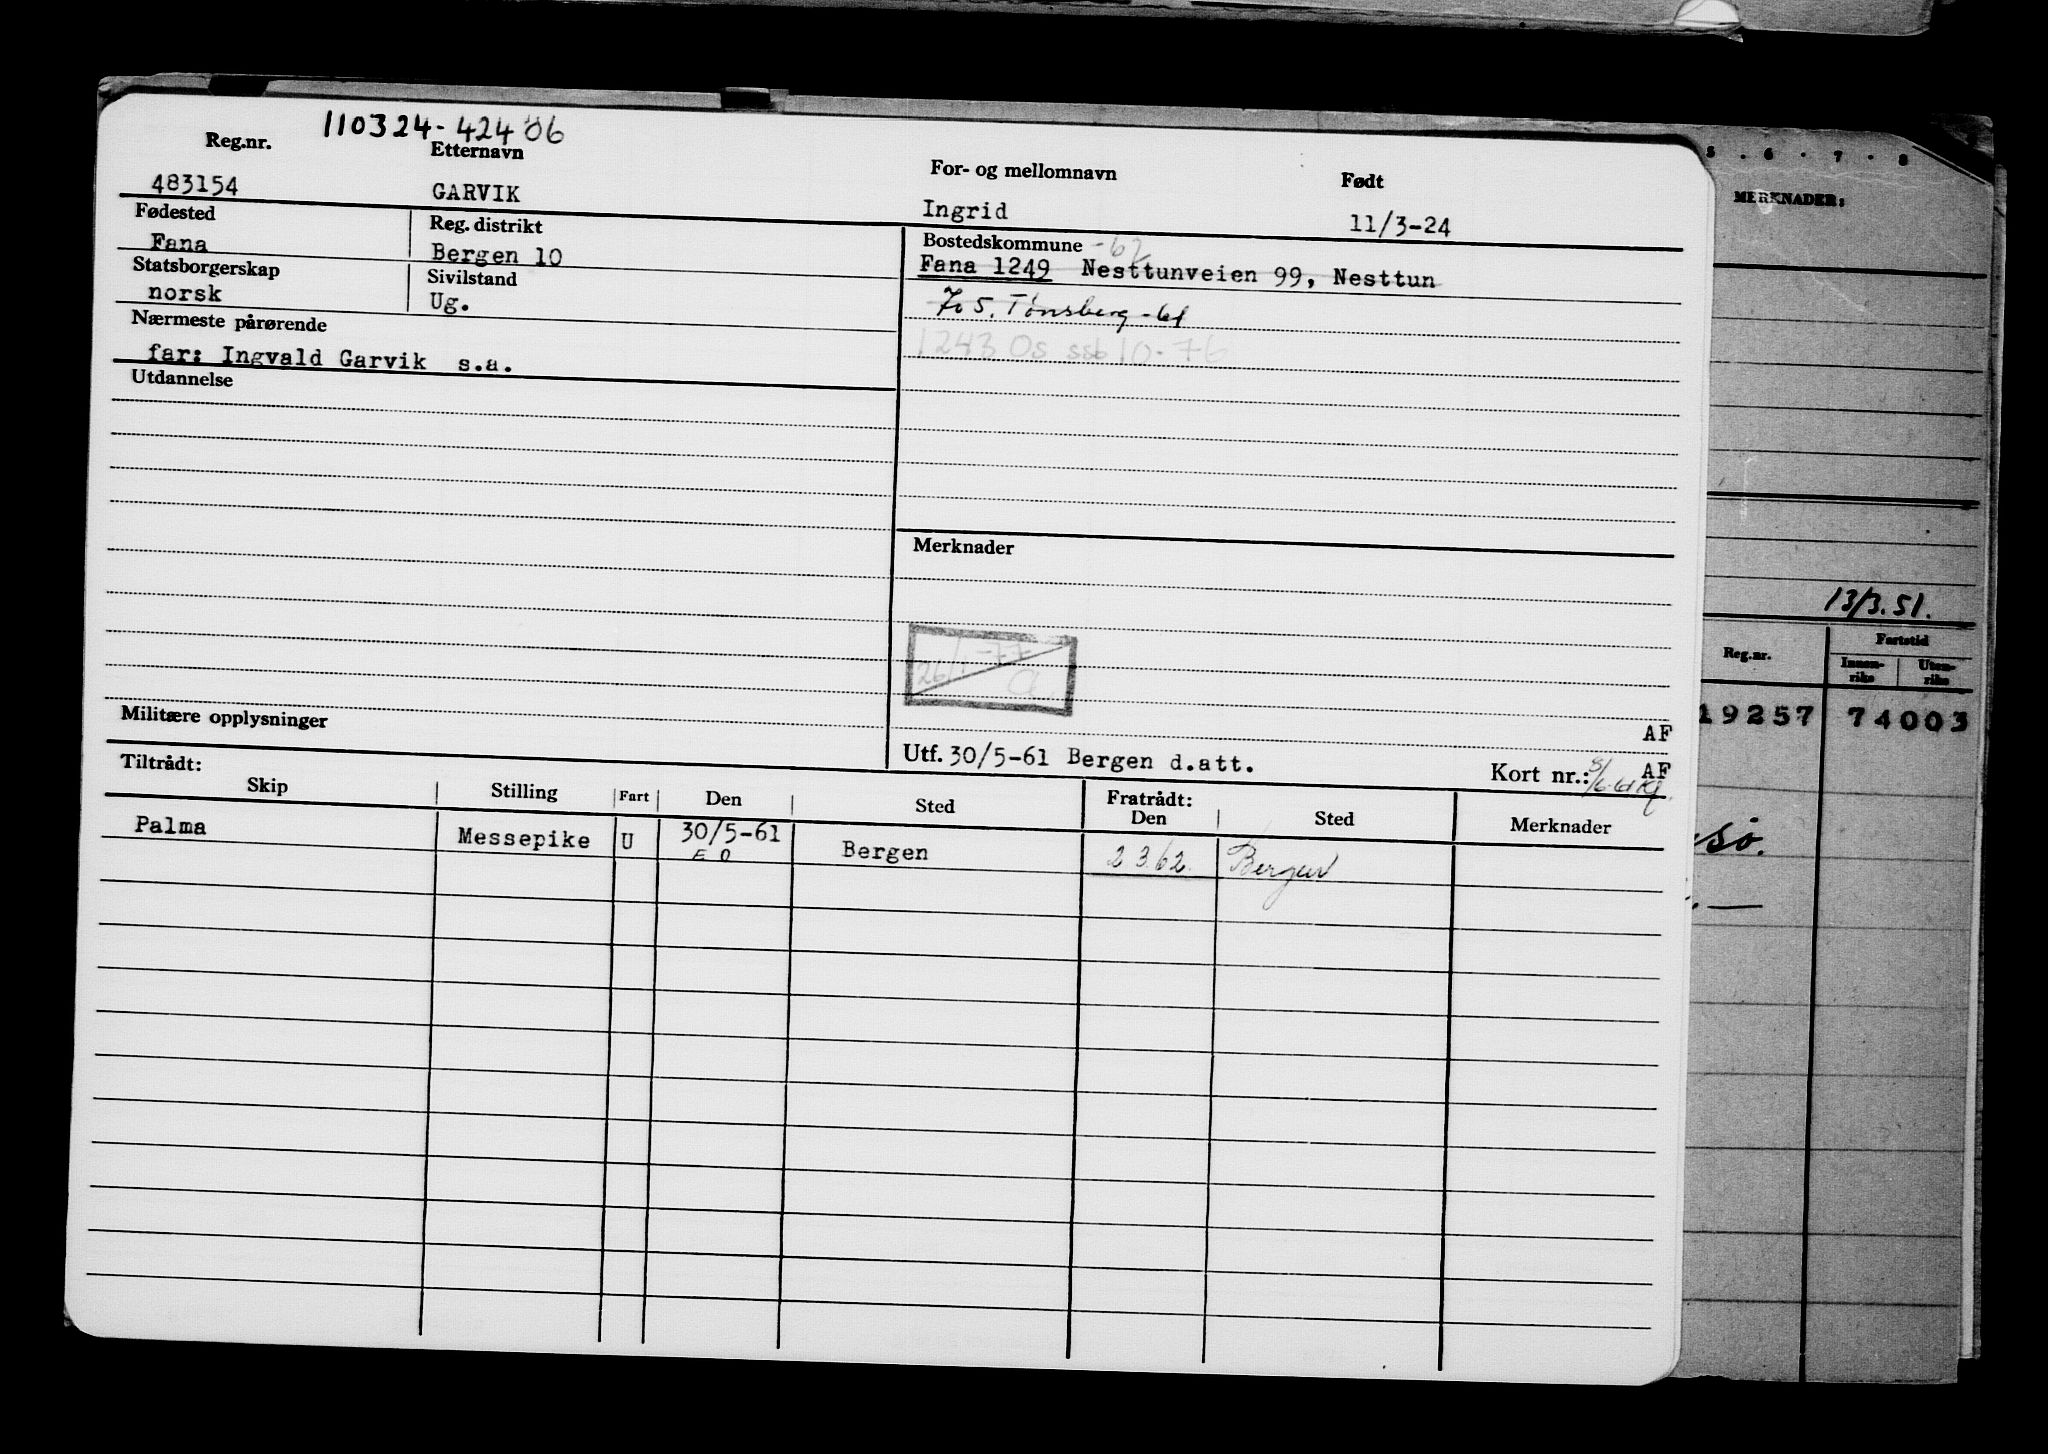 110324-42406
Reg.nr. Etternavn For- og mellomnavn Født
483154 GARVIK Ingrid 11/3-24
Fødested Reg. distrikt Bostedskommune -62
Fana Bergen 10 Fana 1249 Nesttunveien 99, Nesttun
Statsborgerskap Sivilstand
norsk Ug. 705. Tønsberg -61
Nærmeste pårørende 1243 Os ssb 10-76
far: Ingvald Garvik s.a.
Utdannelse
Merknader
26/1-77
Militære opplysninger AF
Utf. 30/5-61 Bergen d.att. Kort nr.: AF
Tiltrådt: Fratrådt:
Skip Stilling Fart Den Sted Den Sted Merknader
Palma Messepike U 30/5-61 Bergen 2 3.62. Bergen
E O
5 . 6 . 7 . 8
MERKNADER:
13/3.51.
Reg.nr. Fartstid
Innen-riks Uten-riks
19257 74003